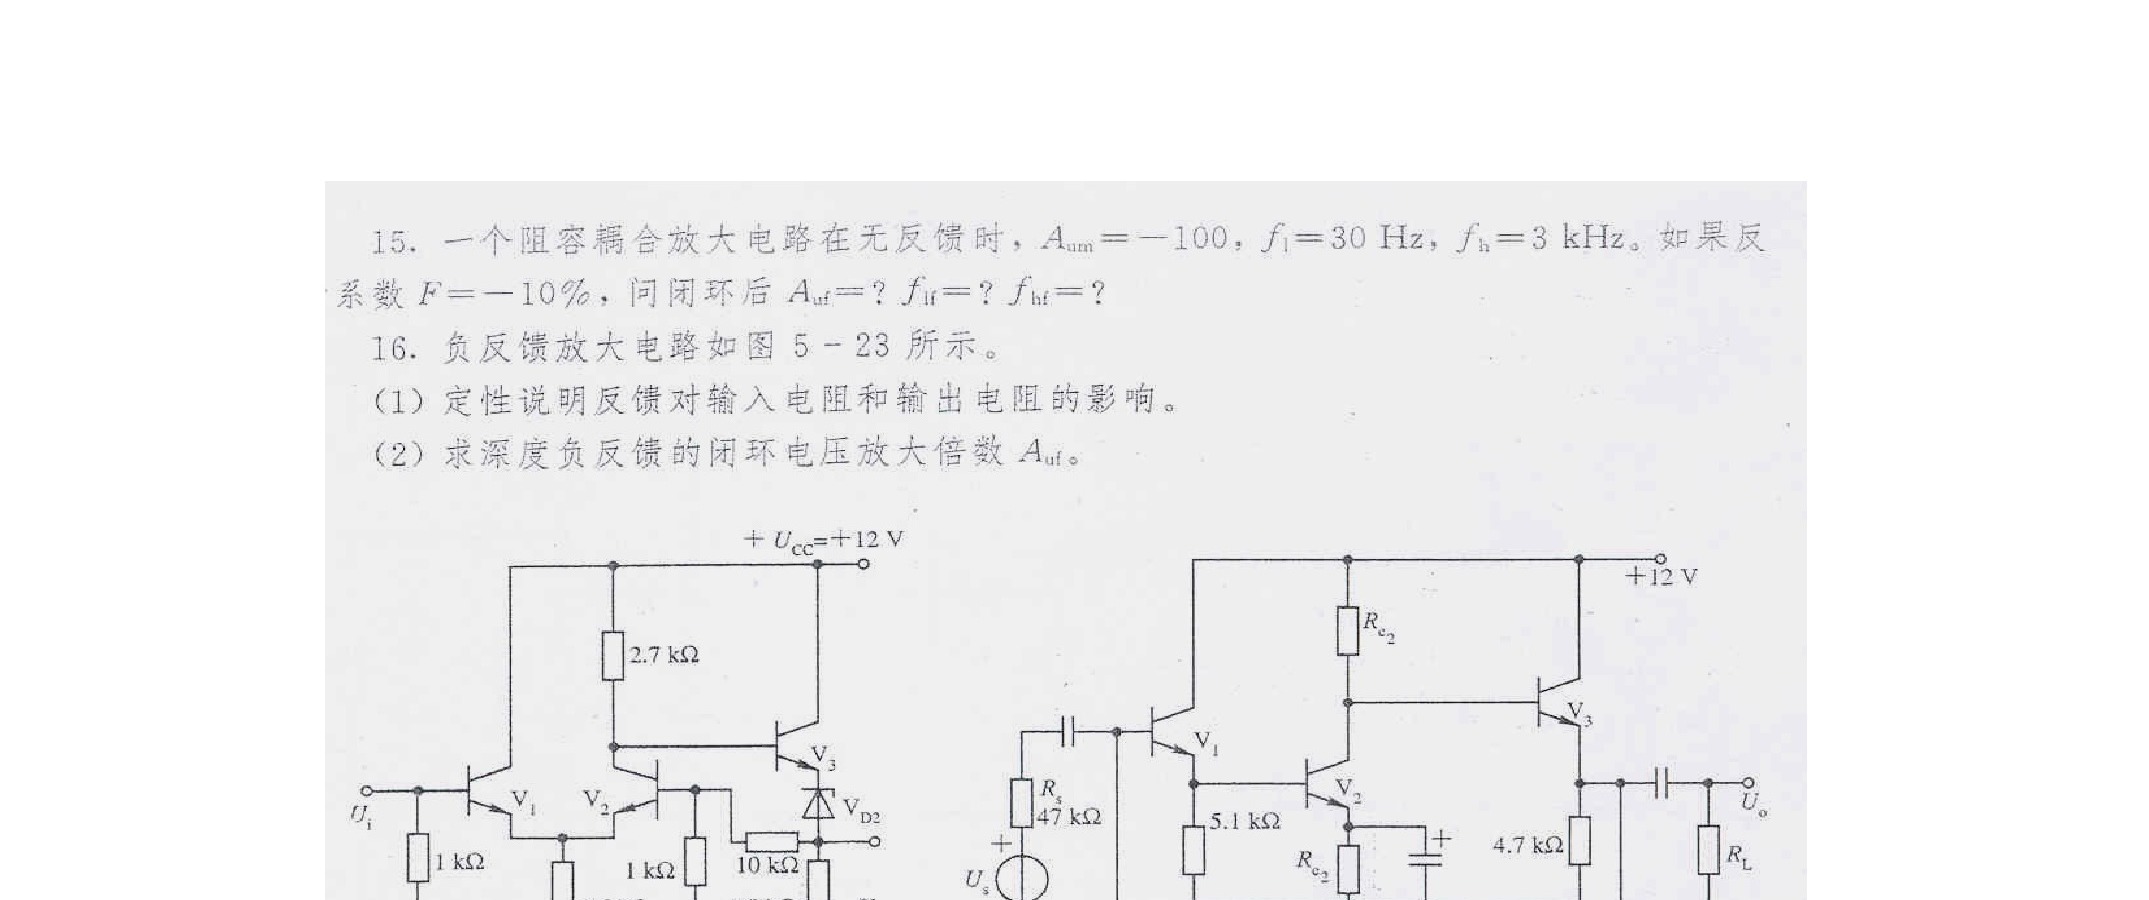 15. 一个阻容耦合放大电路在无反馈时，Aum＝－100，fl＝30 Hz，fh＝3 kHz。如果反
系数 F＝－10%，问闭环后 Auf＝? flf＝? fhf＝?
16. 负反馈放大电路如图 5－23 所示。
(1) 定性说明反馈对输入电阻和输出电阻的影响。
(2) 求深度负反馈的闭环电压放大倍数 Auf。
+ UCC=+12 V
2.7 kΩ
V1
V2
V3
VD2
Ui
1 kΩ
1 kΩ
10 kΩ
+12 V
Rc2
V1
V2
V3
Rs
47 kΩ
+
Us
5.1 kΩ
Re2
+
4.7 kΩ
Uo
RL